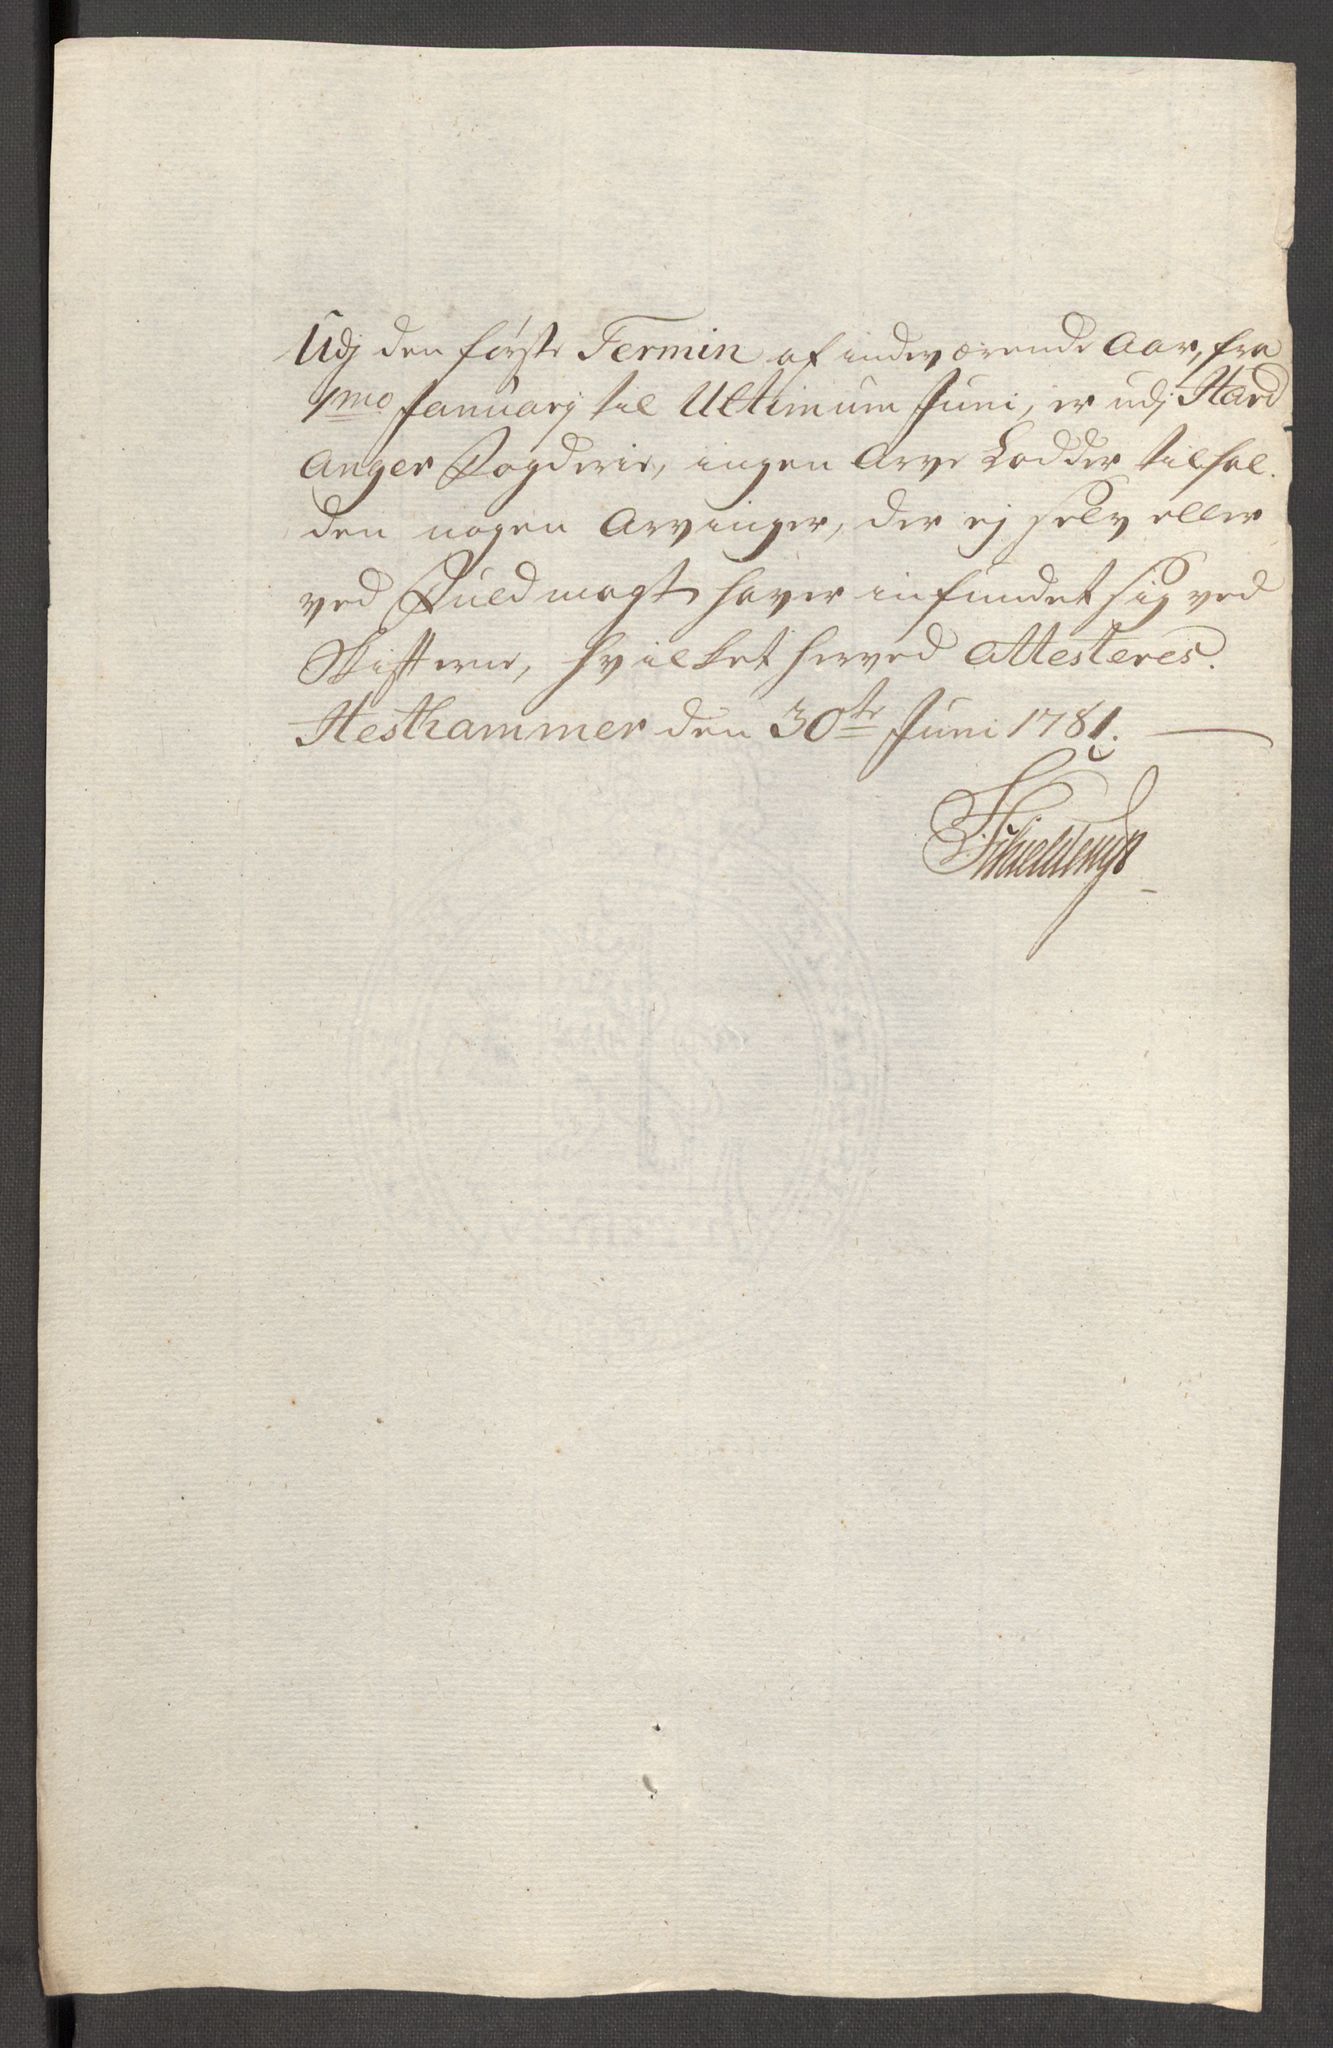 Udj den første Termin af indeværende Aar, fra
1mo Januarj til Ultimum Juni, er udj Hard
Anger Fogderie, ingen Arve Lodder tilfal-
den nogen Arvinger, der ej selv eller
ved Fuldmagt haver infundet sig ved
Skifterne, hvilket herved Attesteres.
Hesthammer den 30te Juni 1781.